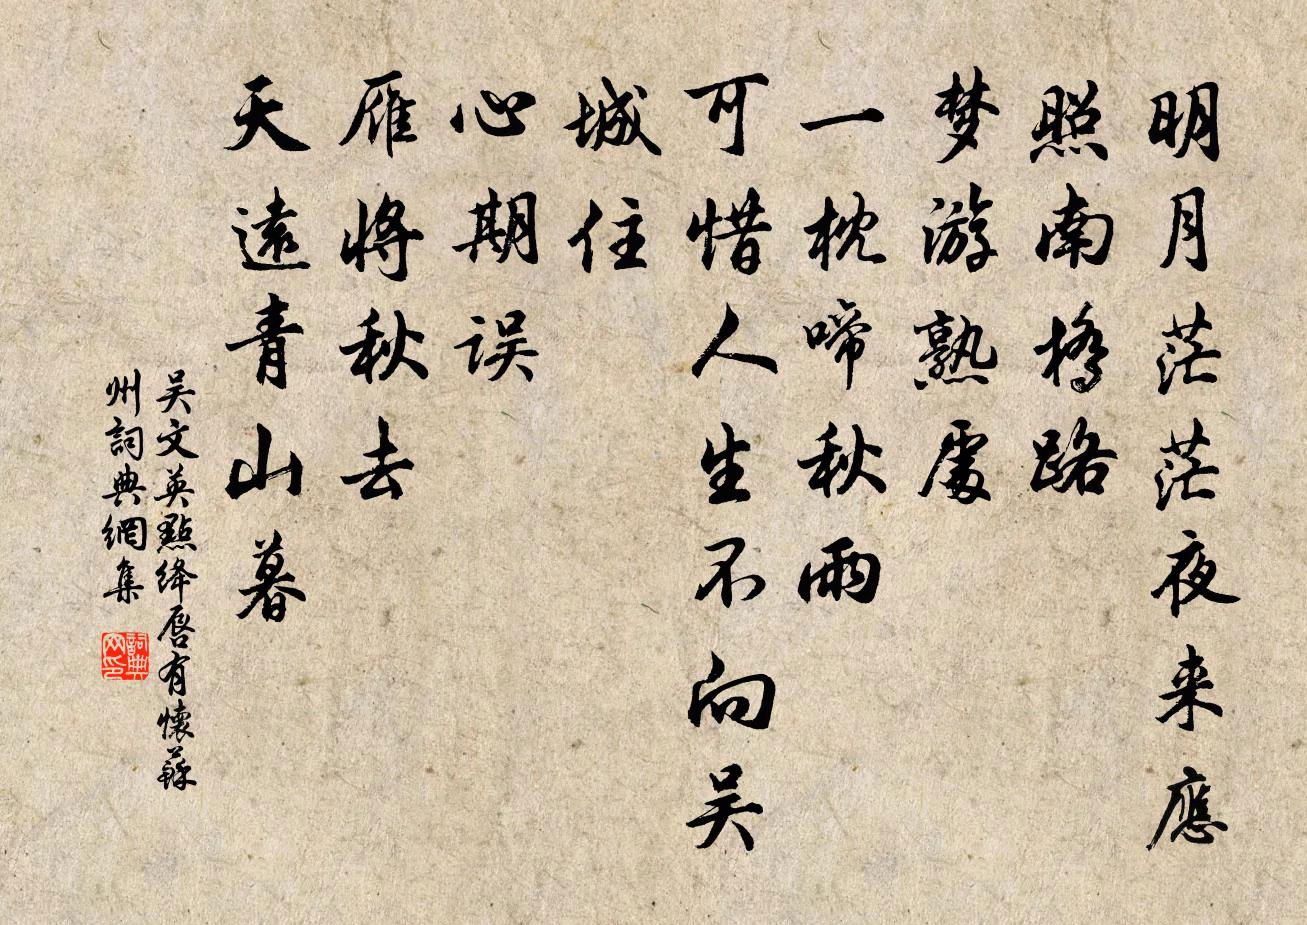 明月茫茫夜来應
照南橋路
梦游熟處
一枕啼秋雨
可惜人生不向吴
城住
心期误
雁将秋去
天遠青山暮
吴文英點绛唇有懷蘇
州詞典網集
詞典网印